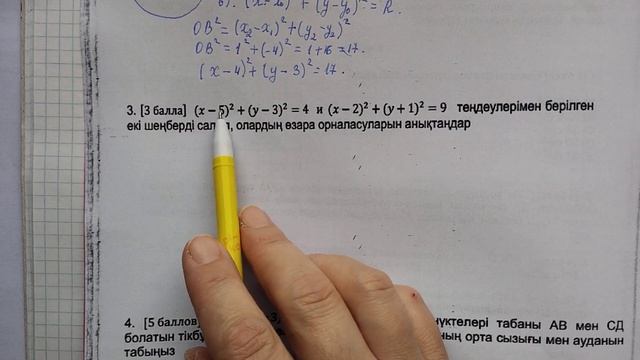 OB² = (x₂-x₁)² + (y₂-y₂)²
OB² = 1² + (-4)² = 1+16 = 17.
(x-4)² + (y-3)² = 17.
3. [3 балла] (x − 5)² + (y − 3)² = 4 и (x − 2)² + (y + 1)² = 9 теңдеулерімен берілген
екі шеңберді олардың өзара орналасуларын анықтаңдар
4. [5 баллов нүктелері табаны АВ мен СД
болатын орта сызығы мен ауданын
табыңыз